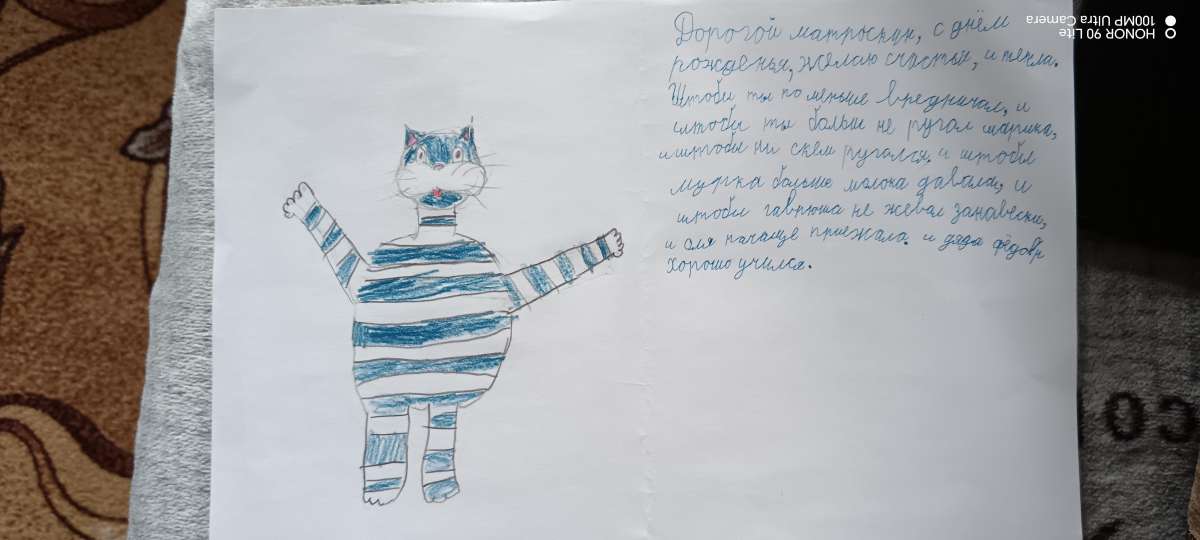 Дорогой матроскин, с днём
рожденья, желаю счастья, и тепла.
Штобы ты по меньше вредничал, и
штобы ты больш не ругал шарика,
и штобы ни скем ругался. и штобы
мурка больше молока давала, и
штобы гаврюша не жевал занавески,
и оля почаще приежала. и дядя фёдовр
хорошо учился.
HONOR 90 Lite
100MP Ultra Camera
CO